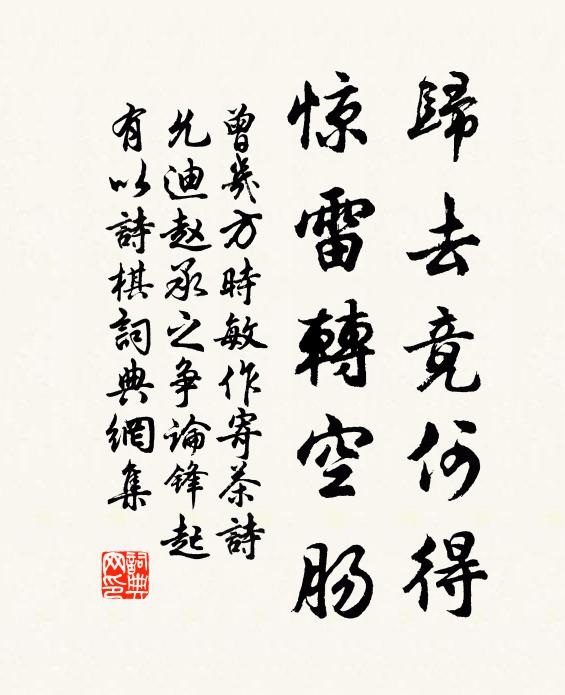 歸去竟何得
惊雷轉空肠
曾幾方時敏作寄茶詩
允迪赵承之争論锋起
有以詩棋詞典網集
詞典網印